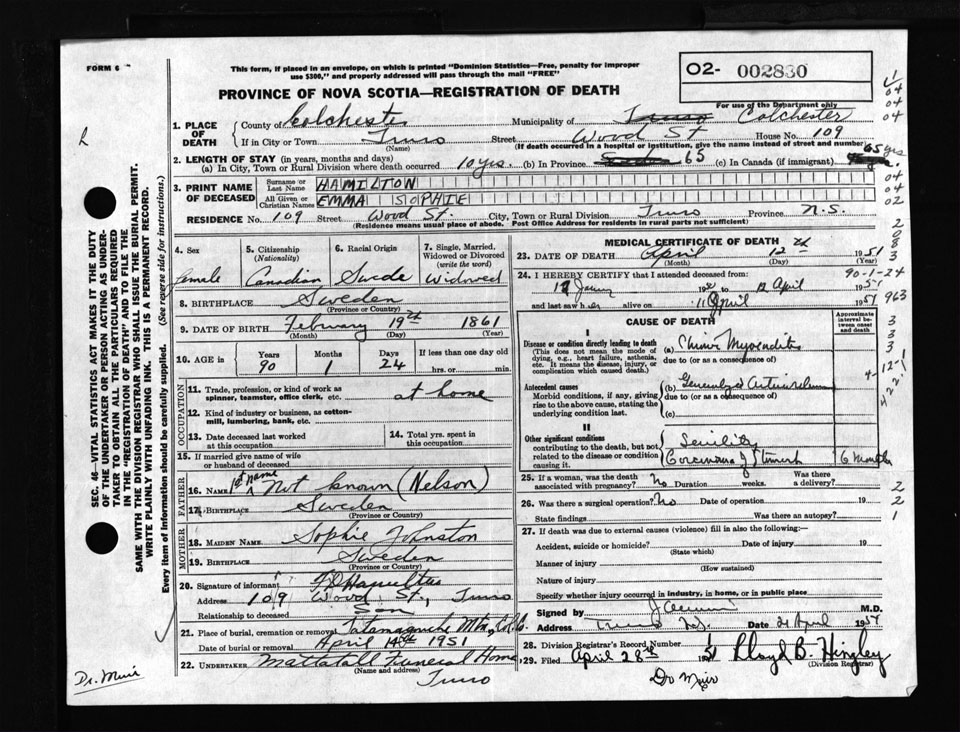 FORM 6
This form, if placed in an envelope, on which is printed "Dominion Statistics—Free, penalty for improper
use $300," and properly addressed will pass through the mail "FREE"
PROVINCE OF NOVA SCOTIA—REGISTRATION OF DEATH
O2- 002830
For use of the Department only
1. PLACE OF DEATH
County of Colchester Municipality of Truro Colchester
If in City or Town Truro Street Wood St House No. 109
(Name) (If death occurred in a hospital or institution, give the name instead of street and number)
2. LENGTH OF STAY (in years, months and days)
(a) In City, Town or Rural Division where death occurred 10 yrs. (b) In Province 65 (c) In Canada (if immigrant) 65 yrs
3. PRINT NAME OF DECEASED
Surname or Last Name HAMILTON
All Given or Christian Names EMMA SOPHIE
RESIDENCE No. 109 Street Wood St. City, Town or Rural Division Truro Province N.S.
(Residence means usual place of abode. Post Office Address for residents in rural parts not sufficient)
4. Sex female
5. Citizenship (Nationality) Canadian
6. Racial Origin Swede
7. Single, Married, Widowed or Divorced (write the word) Widowed
8. BIRTHPLACE Sweden
(Province or Country)
9. DATE OF BIRTH February 19th 1861
(Month) (Day) (Year)
10. AGE in Years 90 Months 1 Days 24 If less than one day old hrs. or min.
OCCUPATION
11. Trade, profession, or kind of work as spinner, teamster, office clerk, etc. at home
12. Kind of industry or business, as cotton-mill, lumbering, bank, etc.
13. Date deceased last worked at this occupation
14. Total yrs. spent in this occupation
15. If married give name of wife or husband of deceased
FATHER
16. Name 1st name Not known (Nelson)
17. Birthplace Sweden
(Province or Country)
MOTHER
18. Maiden Name Sophie Johnston
19. Birthplace Sweden
(Province or Country)
20. Signature of informant Hamilton
Address 109 Wood St., Truro
Relationship to deceased Son
21. Place of burial, cremation or removal Tatamagouche Mtn., Col. Co.
Date of burial or removal April 14th 1951
22. Undertaker Mattatall Funeral Home
(Name and address)
Truro
MEDICAL CERTIFICATE OF DEATH
23. DATE OF DEATH April 12th 1951
(Month) (Day) (Year)
24. I HEREBY CERTIFY that I attended deceased from
90-1-24
12 April 1951
and last saw her alive on 11 April 1951
963
CAUSE OF DEATH
Approximate interval between onset and death
I
Disease or condition directly leading to death
(This does not mean the mode of dying, e.g., heart failure, asthenia, etc. It means the disease, injury, or complication which caused death.)
(a) Myocarditis
due to (or as a consequence of)
Antecedent causes
Morbid conditions, if any, giving rise to the above cause, stating the underlying condition last.
(b) Generalized
due to (or as a consequence of)
(c)
II
Other significant conditions
contributing to the death, but not related to the disease or condition causing it.
Senility
Carcinoma of Stomach 6 Months
25. If a woman, was the death associated with pregnancy? No Duration weeks. Was there a delivery?
26. Was there a surgical operation? No Date of operation 19
State findings Was there an autopsy?
27. If death was due to external causes (violence) fill in also the following:
Accident, suicide or homicide? Date of injury 19
(State which)
Manner of injury
(How sustained)
Nature of injury
Specify whether injury occurred in industry, in home, or in public place
Signed by M.D.
Address Truro N.S. Date 21 April 1951
28. Division Registrar's Record Number
29. Filed April 28th 51 Lloyd B. Hingley
(Division Registrar)
Dr Muir
Dr. Muir
SEC. 46—VITAL STATISTICS ACT MAKES IT THE DUTY
OF THE UNDERTAKER OR PERSON ACTING AS UNDER-
TAKER TO OBTAIN ALL THE PARTICULARS REQUIRED
IN THE "REGISTRATION OF DEATH" AND TO FILE THE
SAME WITH THE DIVISION REGISTRAR WHO SHALL ISSUE THE BURIAL PERMIT.
WRITE PLAINLY WITH UNFADING INK. THIS IS A PERMANENT RECORD.
Every item of information should be carefully supplied. (See reverse side for instructions.)